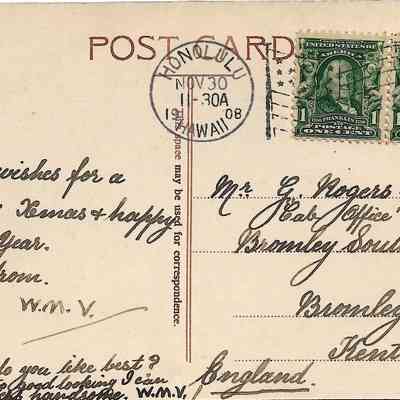 POST CARD
HONOLULU
NOV 30
11-30A
1908
HAWAII
UNITED STATES OF
AMERICA
1 FRANKLIN 1
POSTAGE
ONE CENT
This space may be used for correspondence.
wishes for a
Xmas & happy
Year.
from.
W.M.V.
do you like best?
good looking I can
handsome. W.M.V.
Mr G. Rogers
Cab Office
Bromley Sout
Bromley
Kent
England.